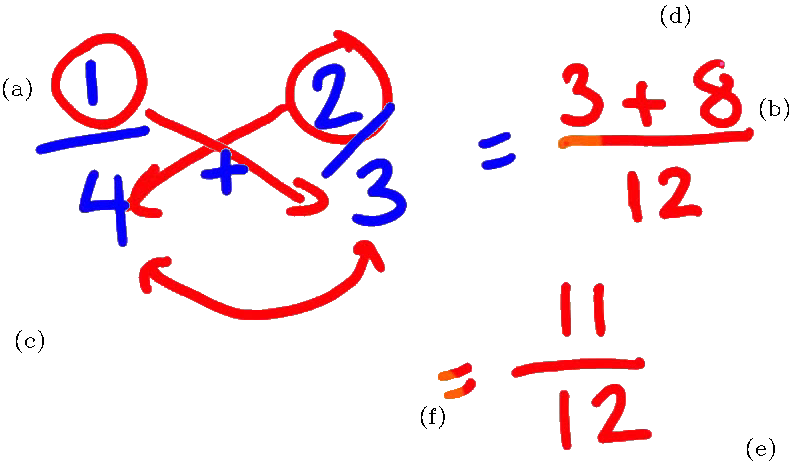 (d)
(a) 1/4 + 2/3 = (3 + 8)/12 (b)
(c)
= 11/12
(f)
(e)